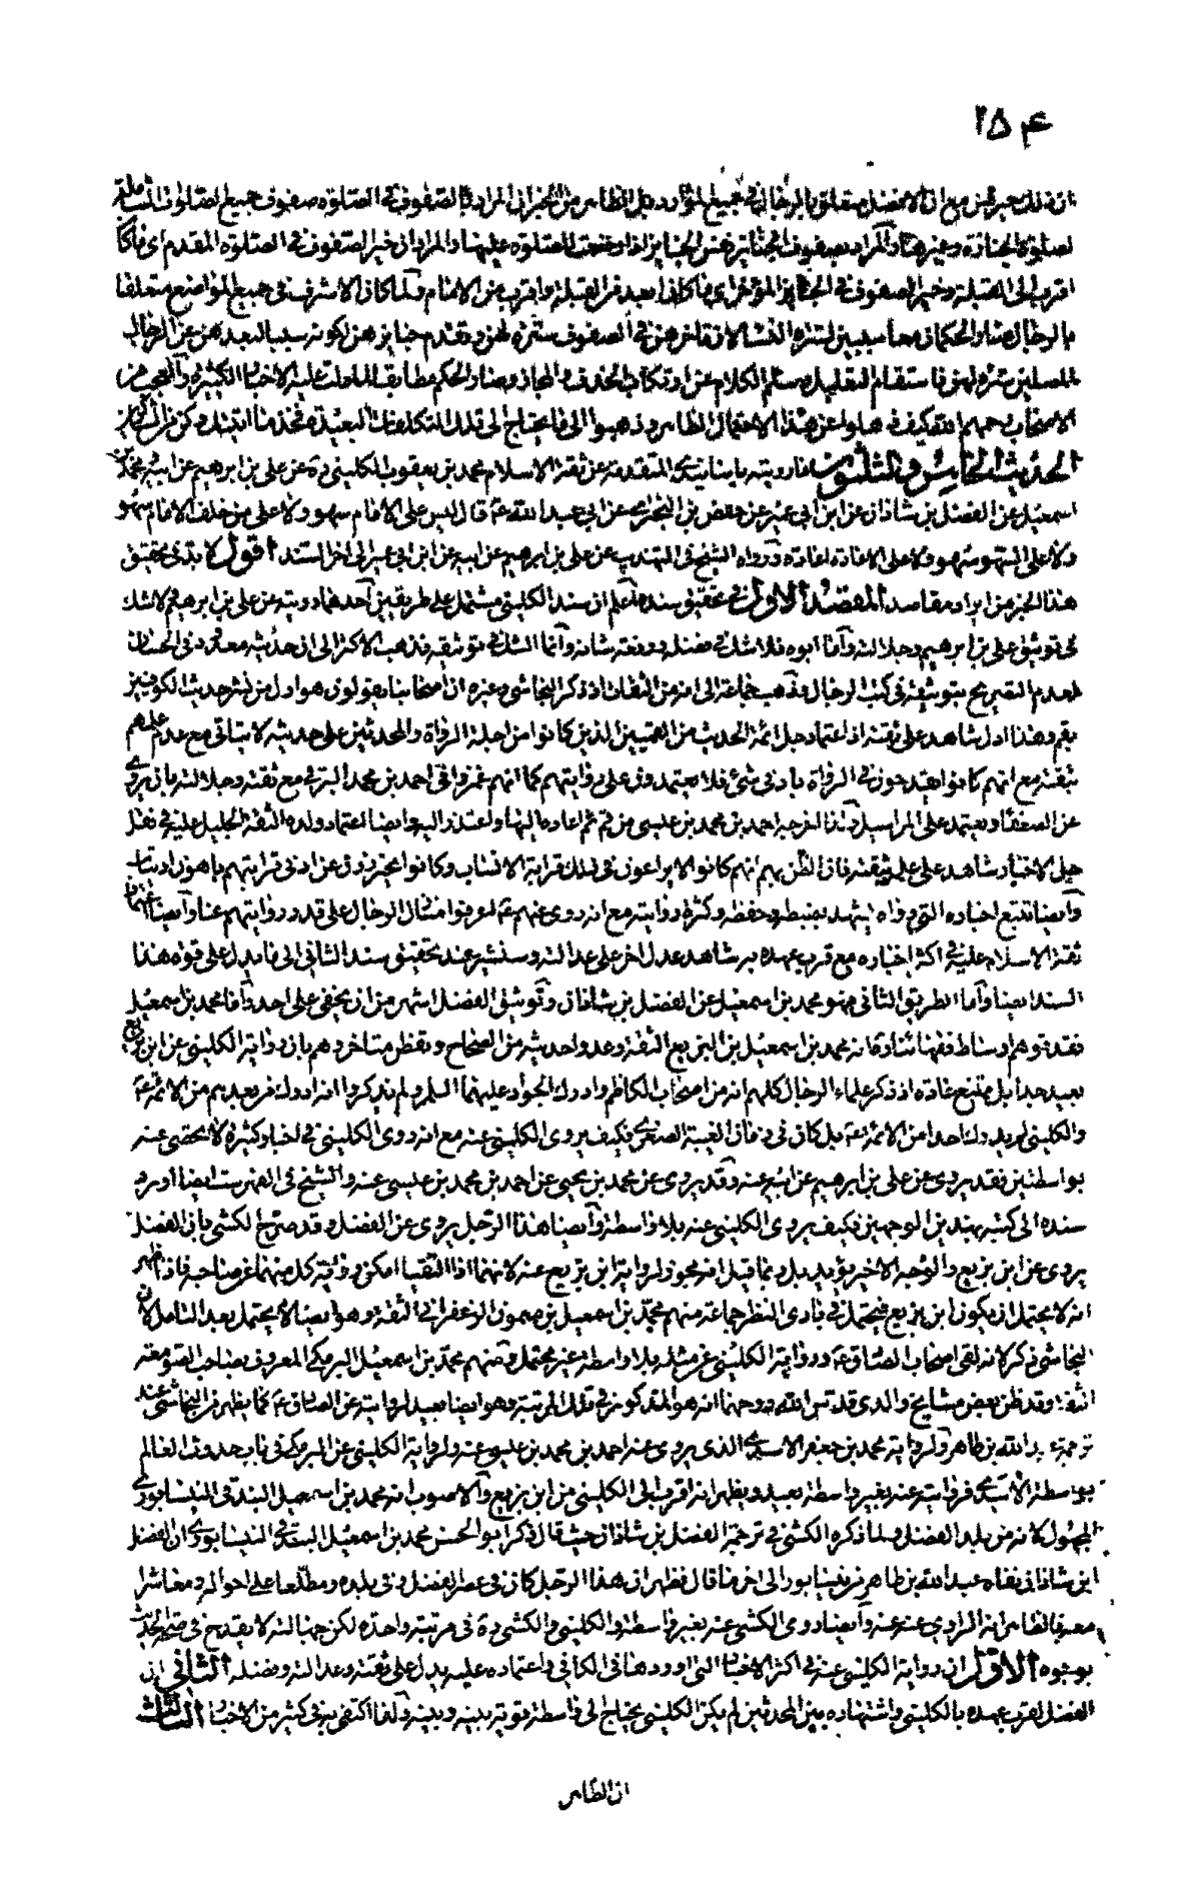 ۲۵۴
لصلوة الجنازة وغيرها والمراد بصفوف الجنايز نفس الجنايز اذا وضعت للصلوة عليها والمراد ان خير الصفوف في الصلوة المقدم اي ما كان
اقرب الى القبلة وخير الصفوف في الجنايز المؤخر اي ما كان ابعد من القبلة واقرب من الامام ولما كان الاشرف في جميع المواضع متعلقا
بالرجال صار الحكمان معا سببين لستره النساء لان تاخرهن في الصفوف ستره لهن وتقدم جنايزهن لكونه سببا لبعدهن عن الرجال
المصلين ستره لهن فاستقام التعليل وسلم الكلام عن ارتكاب الحذف والمجاز وصار الحكم مطابقا لما دلت عليه الاخبار الكثيرة والعجب من
الاصحاب رحمهم الله كيف ذهلوا عن هذا الاحتمال الظاهر وذهبوا الى ما يحتاج الى تلك التكلفات البعيدة فخذ ما اتيتك وكن من الشاكرين
الحديث الخامس والثلثون ما رويته باسانيدي المتقدمة عن ثقة الاسلام محمد بن يعقوب الكليني ره عن علي بن ابرهيم عن ابيه ومحمد بن
اسمعيل عن الفضل بن شاذان عن ابن ابي عمير عن حفص بن البختري عن ابي عبد الله ع قال ليس على الامام سهو ولا على من خلف الامام سهو
ولا على السهو سهو ولا على الاعادة اعادة ورواه الشيخ في التهذيب عن علي بن ابرهيم عن ابيه عن ابن ابي عمير الى اخر السند اقول لا بد في تحقيق
هذا الخبر من ايراد مقاصد المقصد الاول في تحقيق سنده اعلم ان سند الكليني مشتمل على طريقين احدهما رويته عن علي بن ابرهيم لا شك
في توثيق علي بن ابرهيم وجلالته واما ابوه فلا شك في فضله ورفعة شانه وانما الشك في توثيقه فذهب الاكثر الى ان حديثه معدود في الحسان
لعدم التصريح بتوثيقه في كتب الرجال وذهب جماعة الى انه من الثقات اذ ذكر النجاشي وغيره ان اصحابنا يقولون هو اول من نشر حديث الكوفيين
بقم وهذا ادل شاهد على ثقته اذ اعتماد جل ائمة الحديث من القميين الذين كانوا من اجلة الرواة والمحدثين على حديثه لا يتاتى مع عدم علمهم
بثقته مع انهم كانوا يقدحون في الرواة بادنى شئ فلا يعتمدون على روايتهم كما انهم غمزوا في احمد بن محمد البرقي مع ثقته وجلالته بان يروي
عن الضعفاء ويعتمد على المراسيل ولذا اخرجه احمد بن محمد بن عيسى من قم ثم اعاده اليها واعتذر اليه وايضا اعتماد ولده الثقة الجليل عليه في نقل
جل الاخبار شاهد على علمه بثقته فان الظن بهم انهم كانوا لا يراعون في ذلك قرابة الانتساب وكانوا يحترزون عن ادنى قرابتهم باهون ارتياب
وايضا تتبع اخباره التي رواه يشهد بضبطه وحفظه وكثرة روايته مع انه روى عنهم ع اعرفوا منازل الرجال على قدر روايتهم عنا وايضا اعتماد
ثقة الاسلام عليه في اكثر اخباره مع قرب عهده به شاهد عدل اخر على عدالته وسنشير عند تحقيق سند الثاني الى ما يدل على قوة هذا
السند ايضا واما الطريق الثاني فهو محمد بن اسمعيل عن الفضل بن شاذان وتوثيق الفضل اشهر من ان يخفى على احد واما محمد بن اسمعيل
بعيد جدا بل ممتنع عادة اذ ذكر علماء الرجال كلهم انه من اصحاب الكاظم وادرك الجواد عليهما السلام ولم يذكروا انه ادرك من بعدهم من الائمة ع
والكليني لم يدرك احدا من الائمة ع بل كان في زمان الغيبة الصغرى فكيف يروى الكليني عنه مع انه روى الكليني في اخبار كثيرة لا تحصى عنه
بواسطتين فقد يروى عن علي بن ابرهيم عن ابيه عنه وقد يروى عن محمد بن يحيى عن احمد بن محمد بن عيسى عنه والشيخ في الفهرست ايضا اورد
سنده الى كتبه بهذين الوجهين فكيف يروى الكليني عنه بلا واسطة وايضا هذا الرجل يروى عن الفضل وقد صرح الكشي بان الفضل
يروى عن ابن بزيع والوجه الاخير مؤيد بل ربما قيل انه يجوز لرواية ابن بزيع عنه لانهما اذا التقيا امكن رواية كل منهما عن صاحبه فاذا ظهر
انه لا يحتمل ان يكون ابن بزيع فيحتمل في بادى النظر جماعة منهم محمد بن اسمعيل بن ميمون الزعفراني الثقة وهو ايضا لا يحتمل بعد التامل لان
النجاشي ذكر انه لقى اصحاب الصادق ع ورواية الكليني عن مثله بلا واسطة غير محتمل ومنهم محمد بن اسمعيل البرمكي المعروف بصاحب الصومعة
الثقة وقد ظن بعض مشايخ والدي قدس الله روحهما انه هو المذكور في تلك المرتبة وهو ايضا بعيد لروايته عن الصادق ع كما يظهر من النجاشي عند
ترجمة عبد الله بن طاهر ولرواية محمد بن جعفر الاسدي الذي يروى عنه احمد بن محمد بن عيسى عنه ولرواية الكليني عن البرمكي في باب حدوث العالم
بواسطة الاسدي فروايته عنه بغير واسطة بعيد ويظهر انه اقرب الى الكليني من ابن بزيع والاصوب انه محمد بن اسمعيل البندقي النيسابوري
المجهول لانه من بلد الفضل ولما ذكره الكشي في ترجمة الفضل بن شاذان حيث قال ذكر ابو الحسن محمد بن اسمعيل البندقي النيسابوري ان الفضل
ابن شاذان نفاه عبد الله بن طاهر من نيسابور الى اخر ما قال فظهر ان هذا الرجل كان في عصر الفضل وفي بلده ومطلعا على احواله ومعاشرا
معه فالظاهر انه الراوي عنه وايضا روى الكشي عنه بغير واسطة والكليني والكشي ره في مرتبة واحدة لكن جهالته لا يقدح في صحة الحديث
بوجوه الاول ان رواية الكليني عنه في اكثر الاخبار التي اوردها في الكافي واعتماده عليه يدل على ثقته وعدالته وفضله الثاني ان
الفضل لقرب عهده بالكليني واشتهاره بين المحدثين لم يكن الكليني يحتاج الى واسطة قوية بينه وبينه ولذا اكتفى به في كثير من الاخبار الثالث
ان الظاهر